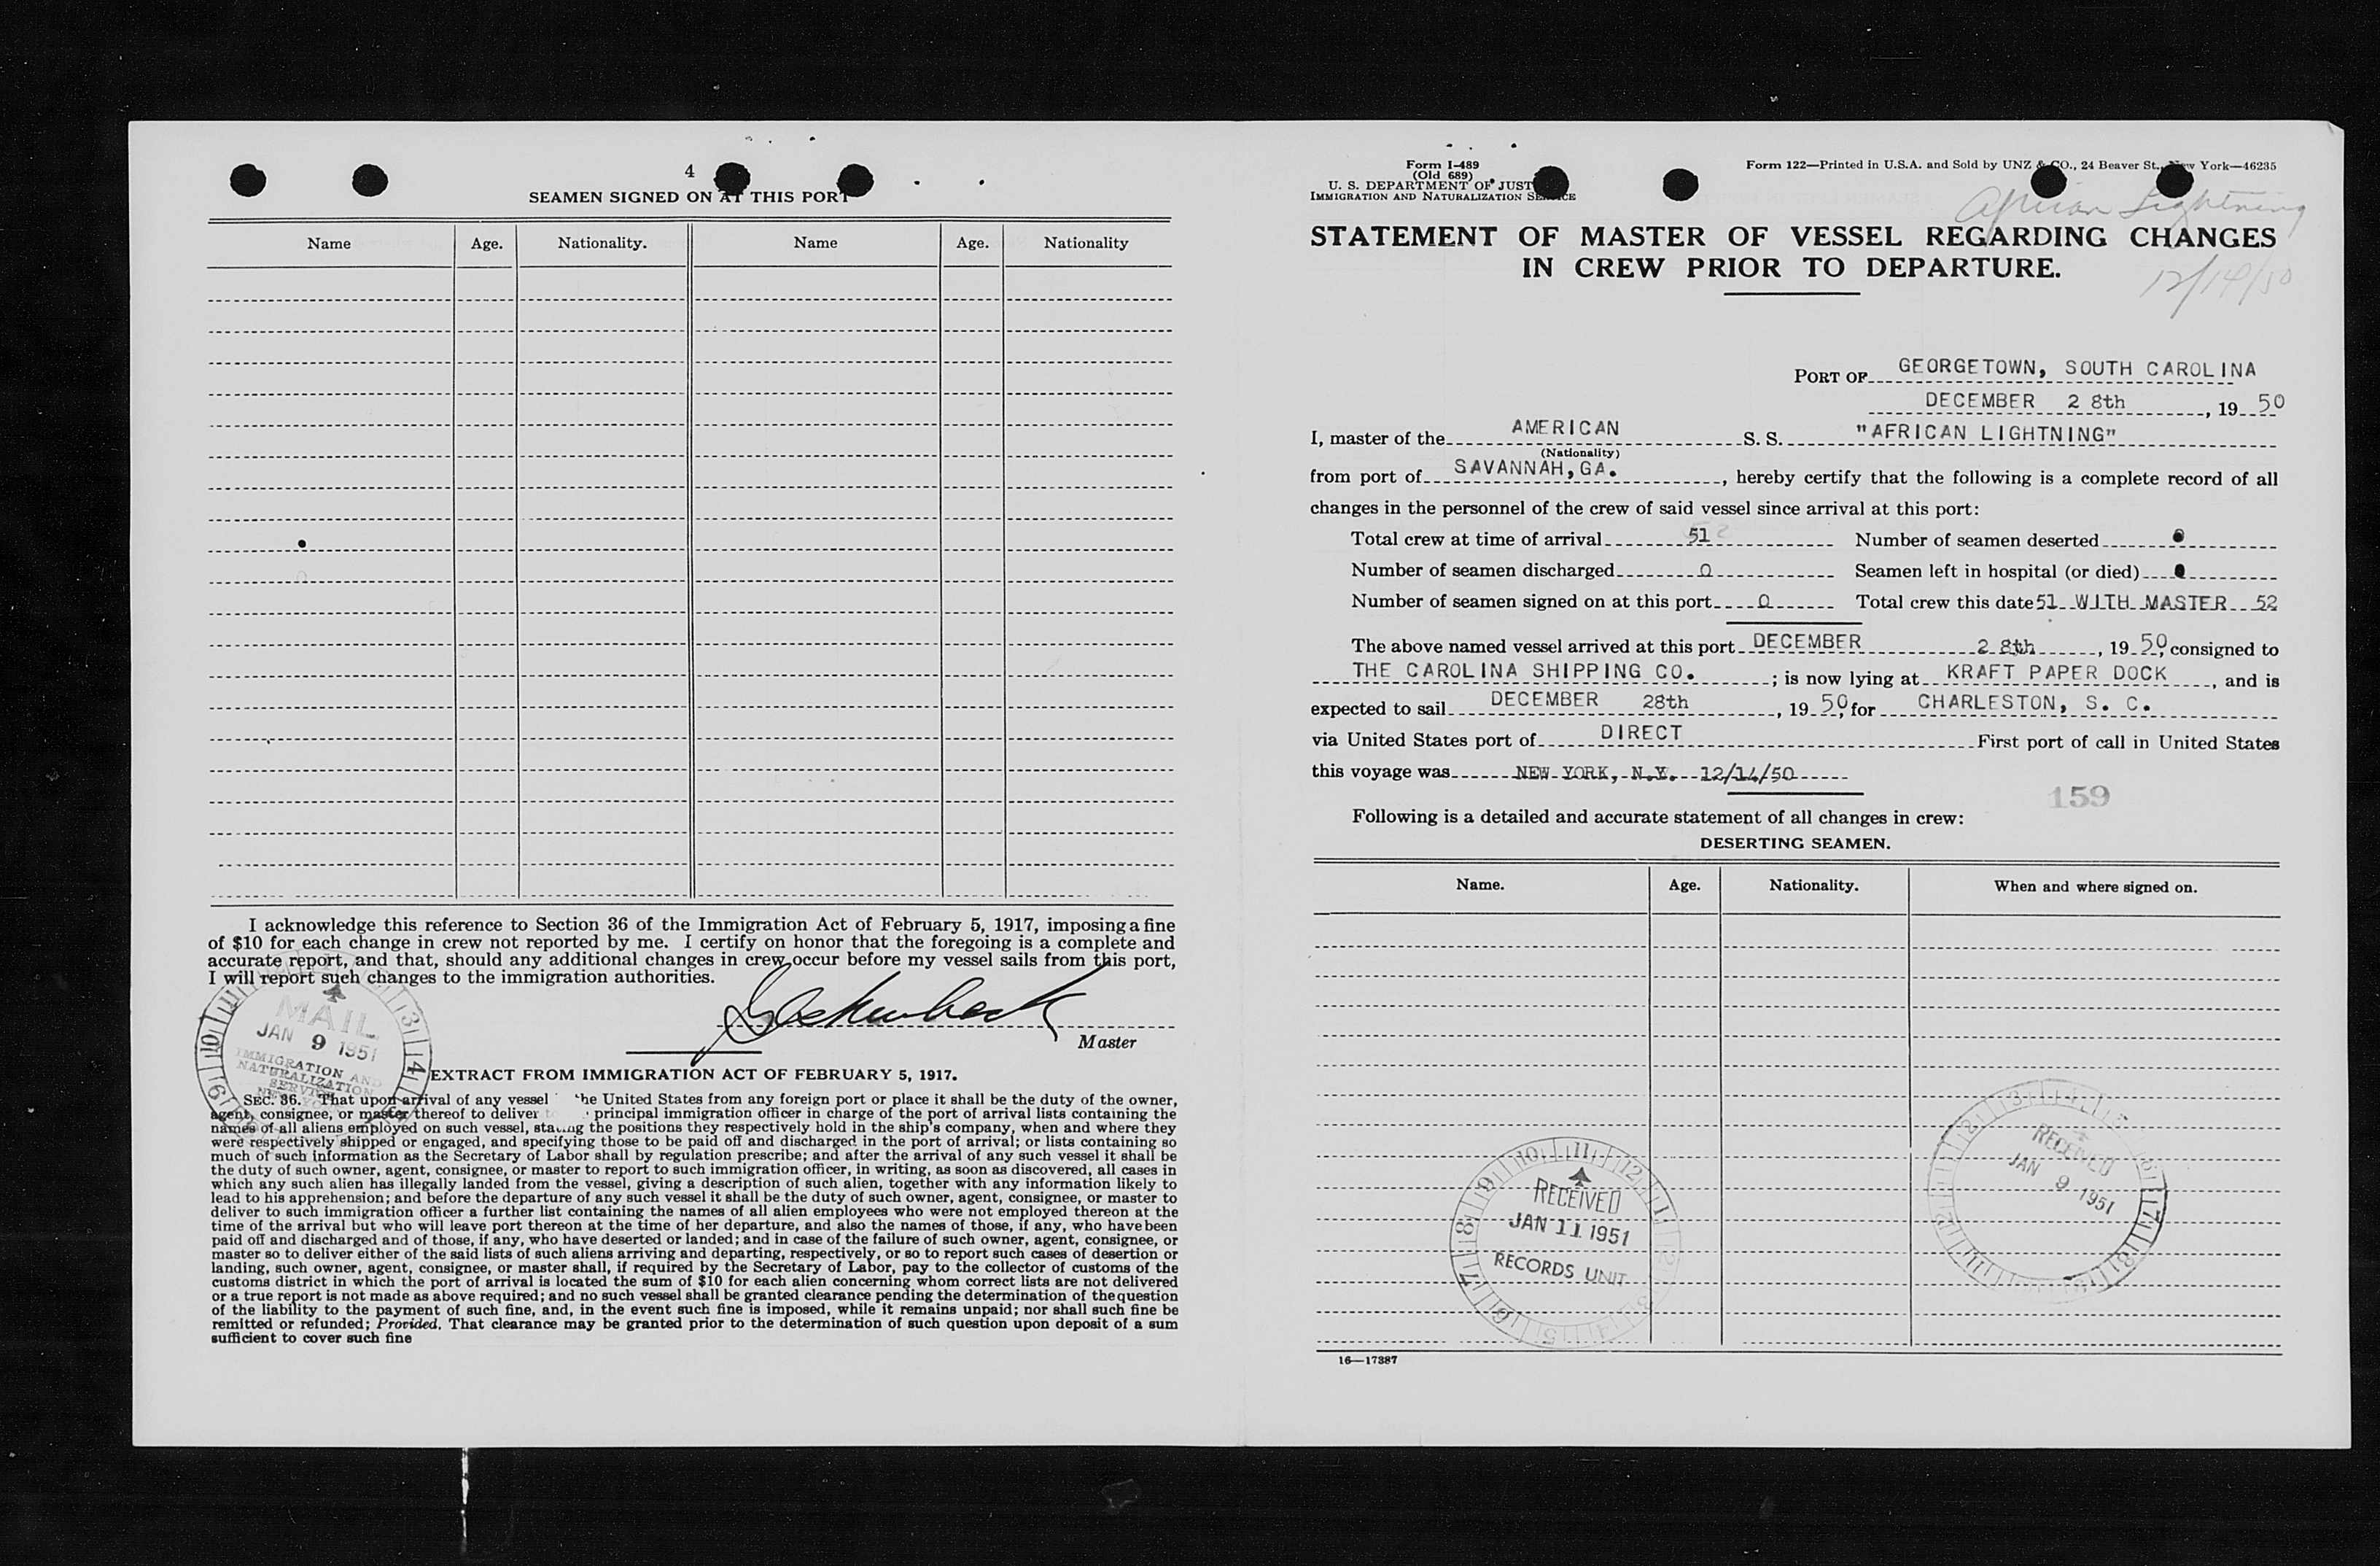 4
SEAMEN SIGNED ON AT THIS PORT
Name Age. Nationality. Name Age. Nationality
I acknowledge this reference to Section 36 of the Immigration Act of February 5, 1917, imposing a fine
of $10 for each change in crew not reported by me. I certify on honor that the foregoing is a complete and
accurate report, and that, should any additional changes in crew occur before my vessel sails from this port,
I will report such changes to the immigration authorities.
MAIL
JAN 9 1951
IMMIGRATION AND
NATURALIZATION
SERVICE
Master
EXTRACT FROM IMMIGRATION ACT OF FEBRUARY 5, 1917.
SEC. 36. That upon arrival of any vessel the United States from any foreign port or place it shall be the duty of the owner,
agent, consignee, or master thereof to deliver to principal immigration officer in charge of the port of arrival lists containing the
names of all aliens employed on such vessel, stating the positions they respectively hold in the ship's company, when and where they
were respectively shipped or engaged, and specifying those to be paid off and discharged in the port of arrival; or lists containing so
much of such information as the Secretary of Labor shall by regulation prescribe; and after the arrival of any such vessel it shall be
the duty of such owner, agent, consignee, or master to report to such immigration officer, in writing, as soon as discovered, all cases in
which any such alien has illegally landed from the vessel, giving a description of such alien, together with any information likely to
lead to his apprehension; and before the departure of any such vessel it shall be the duty of such owner, agent, consignee, or master to
deliver to such immigration officer a further list containing the names of all alien employees who were not employed thereon at the
time of the arrival but who will leave port thereon at the time of her departure, and also the names of those, if any, who have been
paid off and discharged and of those, if any, who have deserted or landed; and in case of the failure of such owner, agent, consignee, or
master so to deliver either of the said lists of such aliens arriving and departing, respectively, or so to report such cases of desertion or
landing, such owner, agent, consignee, or master shall, if required by the Secretary of Labor, pay to the collector of customs of the
customs district in which the port of arrival is located the sum of $10 for each alien concerning whom correct lists are not delivered
or a true report is not made as above required; and no such vessel shall be granted clearance pending the determination of the question
of the liability to the payment of such fine, and, in the event such fine is imposed, while it remains unpaid; nor shall such fine be
remitted or refunded; Provided, That clearance may be granted prior to the determination of such question upon deposit of a sum
sufficient to cover such fine
Form I-489
(Old 689)
U. S. DEPARTMENT OF JUST
IMMIGRATION AND NATURALIZATION SERVICE
Form 122—Printed in U.S.A. and Sold by UNZ & CO., 24 Beaver St., New York—46235
African Lightning
STATEMENT OF MASTER OF VESSEL REGARDING CHANGES
IN CREW PRIOR TO DEPARTURE.
12/14/50
PORT OF GEORGETOWN, SOUTH CAROLINA
DECEMBER 28th, 1950
I, master of the AMERICAN S. S. "AFRICAN LIGHTNING"
(Nationality)
from port of SAVANNAH, GA., hereby certify that the following is a complete record of all
changes in the personnel of the crew of said vessel since arrival at this port:
Total crew at time of arrival 51 52 Number of seamen deserted 0
Number of seamen discharged 0 Seamen left in hospital (or died) 0
Number of seamen signed on at this port 0 Total crew this date 51 WITH MASTER 52
The above named vessel arrived at this port DECEMBER 28th, 1950, consigned to
THE CAROLINA SHIPPING CO.; is now lying at KRAFT PAPER DOCK, and is
expected to sail DECEMBER 28th, 1950, for CHARLESTON, S. C.
via United States port of DIRECT First port of call in United States
this voyage was NEW YORK, N.Y. 12/14/50
159
Following is a detailed and accurate statement of all changes in crew:
DESERTING SEAMEN.
Name. Age. Nationality. When and where signed on.
RECEIVED
JAN 9 1951
RECEIVED
JAN 11 1951
RECORDS UNIT
16—17387